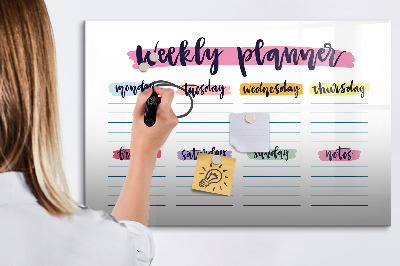 Weekly planner
monday tuesday wednesday thursday
friday saturday sunday notes